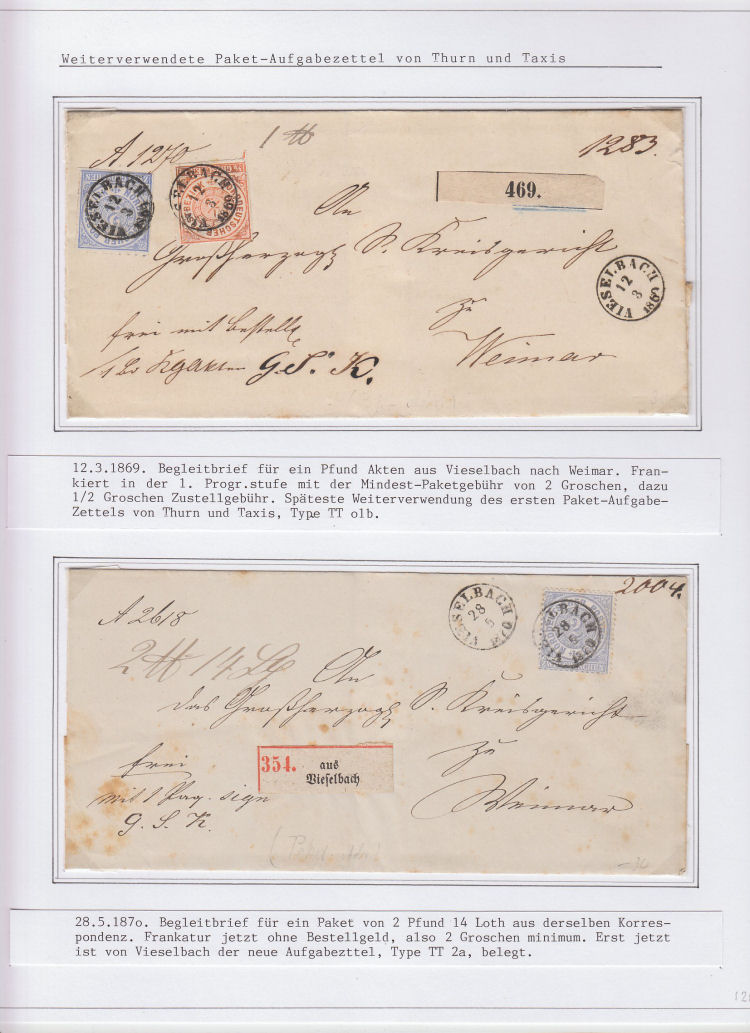 Weiterverwendete Paket-Aufgabezettel von Thurn und Taxis
A 1270
1 ℔
1283.
VIESELBACH 12 3 1869
VIESELBACH 12 3 1869
469.
An
Großherzogl S. Kreisgericht
VIESELBACH 12 3 1869
zu
frei mit bestellg
Weimar
G. S. K.
12.3.1869. Begleitbrief für ein Pfund Akten aus Vieselbach nach Weimar. Fran-
kiert in der 1. Progr.stufe mit der Mindest-Paketgebühr von 2 Groschen, dazu
1/2 Groschen Zustellgebühr. Späteste Weiterverwendung des ersten Paket-Aufgabe-
Zettels von Thurn und Taxis, Type TT olb.
2004.
VIESELBACH 28 5 1870
VIESELBACH 28 5 1870
A 2618
2 ℔ 14 Lg
An
das Großherzogl S. Kreisgericht
zu
frei
354. aus
Vieselbach
mit 1 Paq. sign
Weimar
G. S. K.
28.5.187o. Begleitbrief für ein Paket von 2 Pfund 14 Loth aus derselben Korres-
pondenz. Frankatur jetzt ohne Bestellgeld, also 2 Groschen minimum. Erst jetzt
ist von Vieselbach der neue Aufgabezttel, Type TT 2a, belegt.